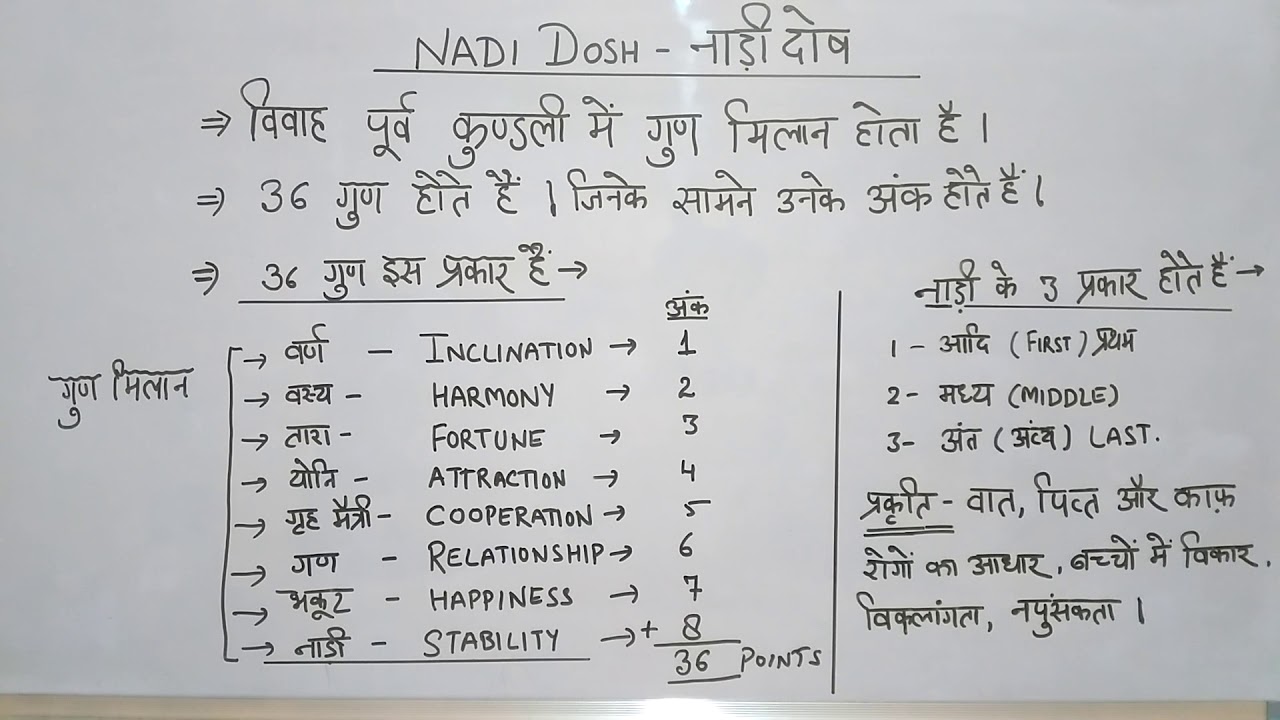 NADI DOSH - नाड़ी दोष
⇒ विवाह पूर्व कुण्डली में गुण मिलान होता है ।
⇒ 36 गुण होते हैं । जिनके सामने उनके अंक होते हैं ।
⇒ 36 गुण इस प्रकार हैं →
अंक
गुण मिलान
→ वर्ण - INCLINATION → 1
→ वस्य - HARMONY → 2
→ तारा - FORTUNE → 3
→ योनि - ATTRACTION → 4
→ गृह मैत्री - COOPERATION → 5
→ गण - RELATIONSHIP → 6
→ भकूट - HAPPINESS → 7
→ नाडी - STABILITY → + 8
36 POINTS
नाड़ी के 3 प्रकार होते हैं →
1 - आदि (FIRST) प्रथम
2 - मध्य (MIDDLE)
3 - अंत (अंत्य) LAST.
प्रकृति - वात, पित्त और काफ़
रोगों का आधार, बच्चों में विकार,
विकलांगता, नपुंसकता ।